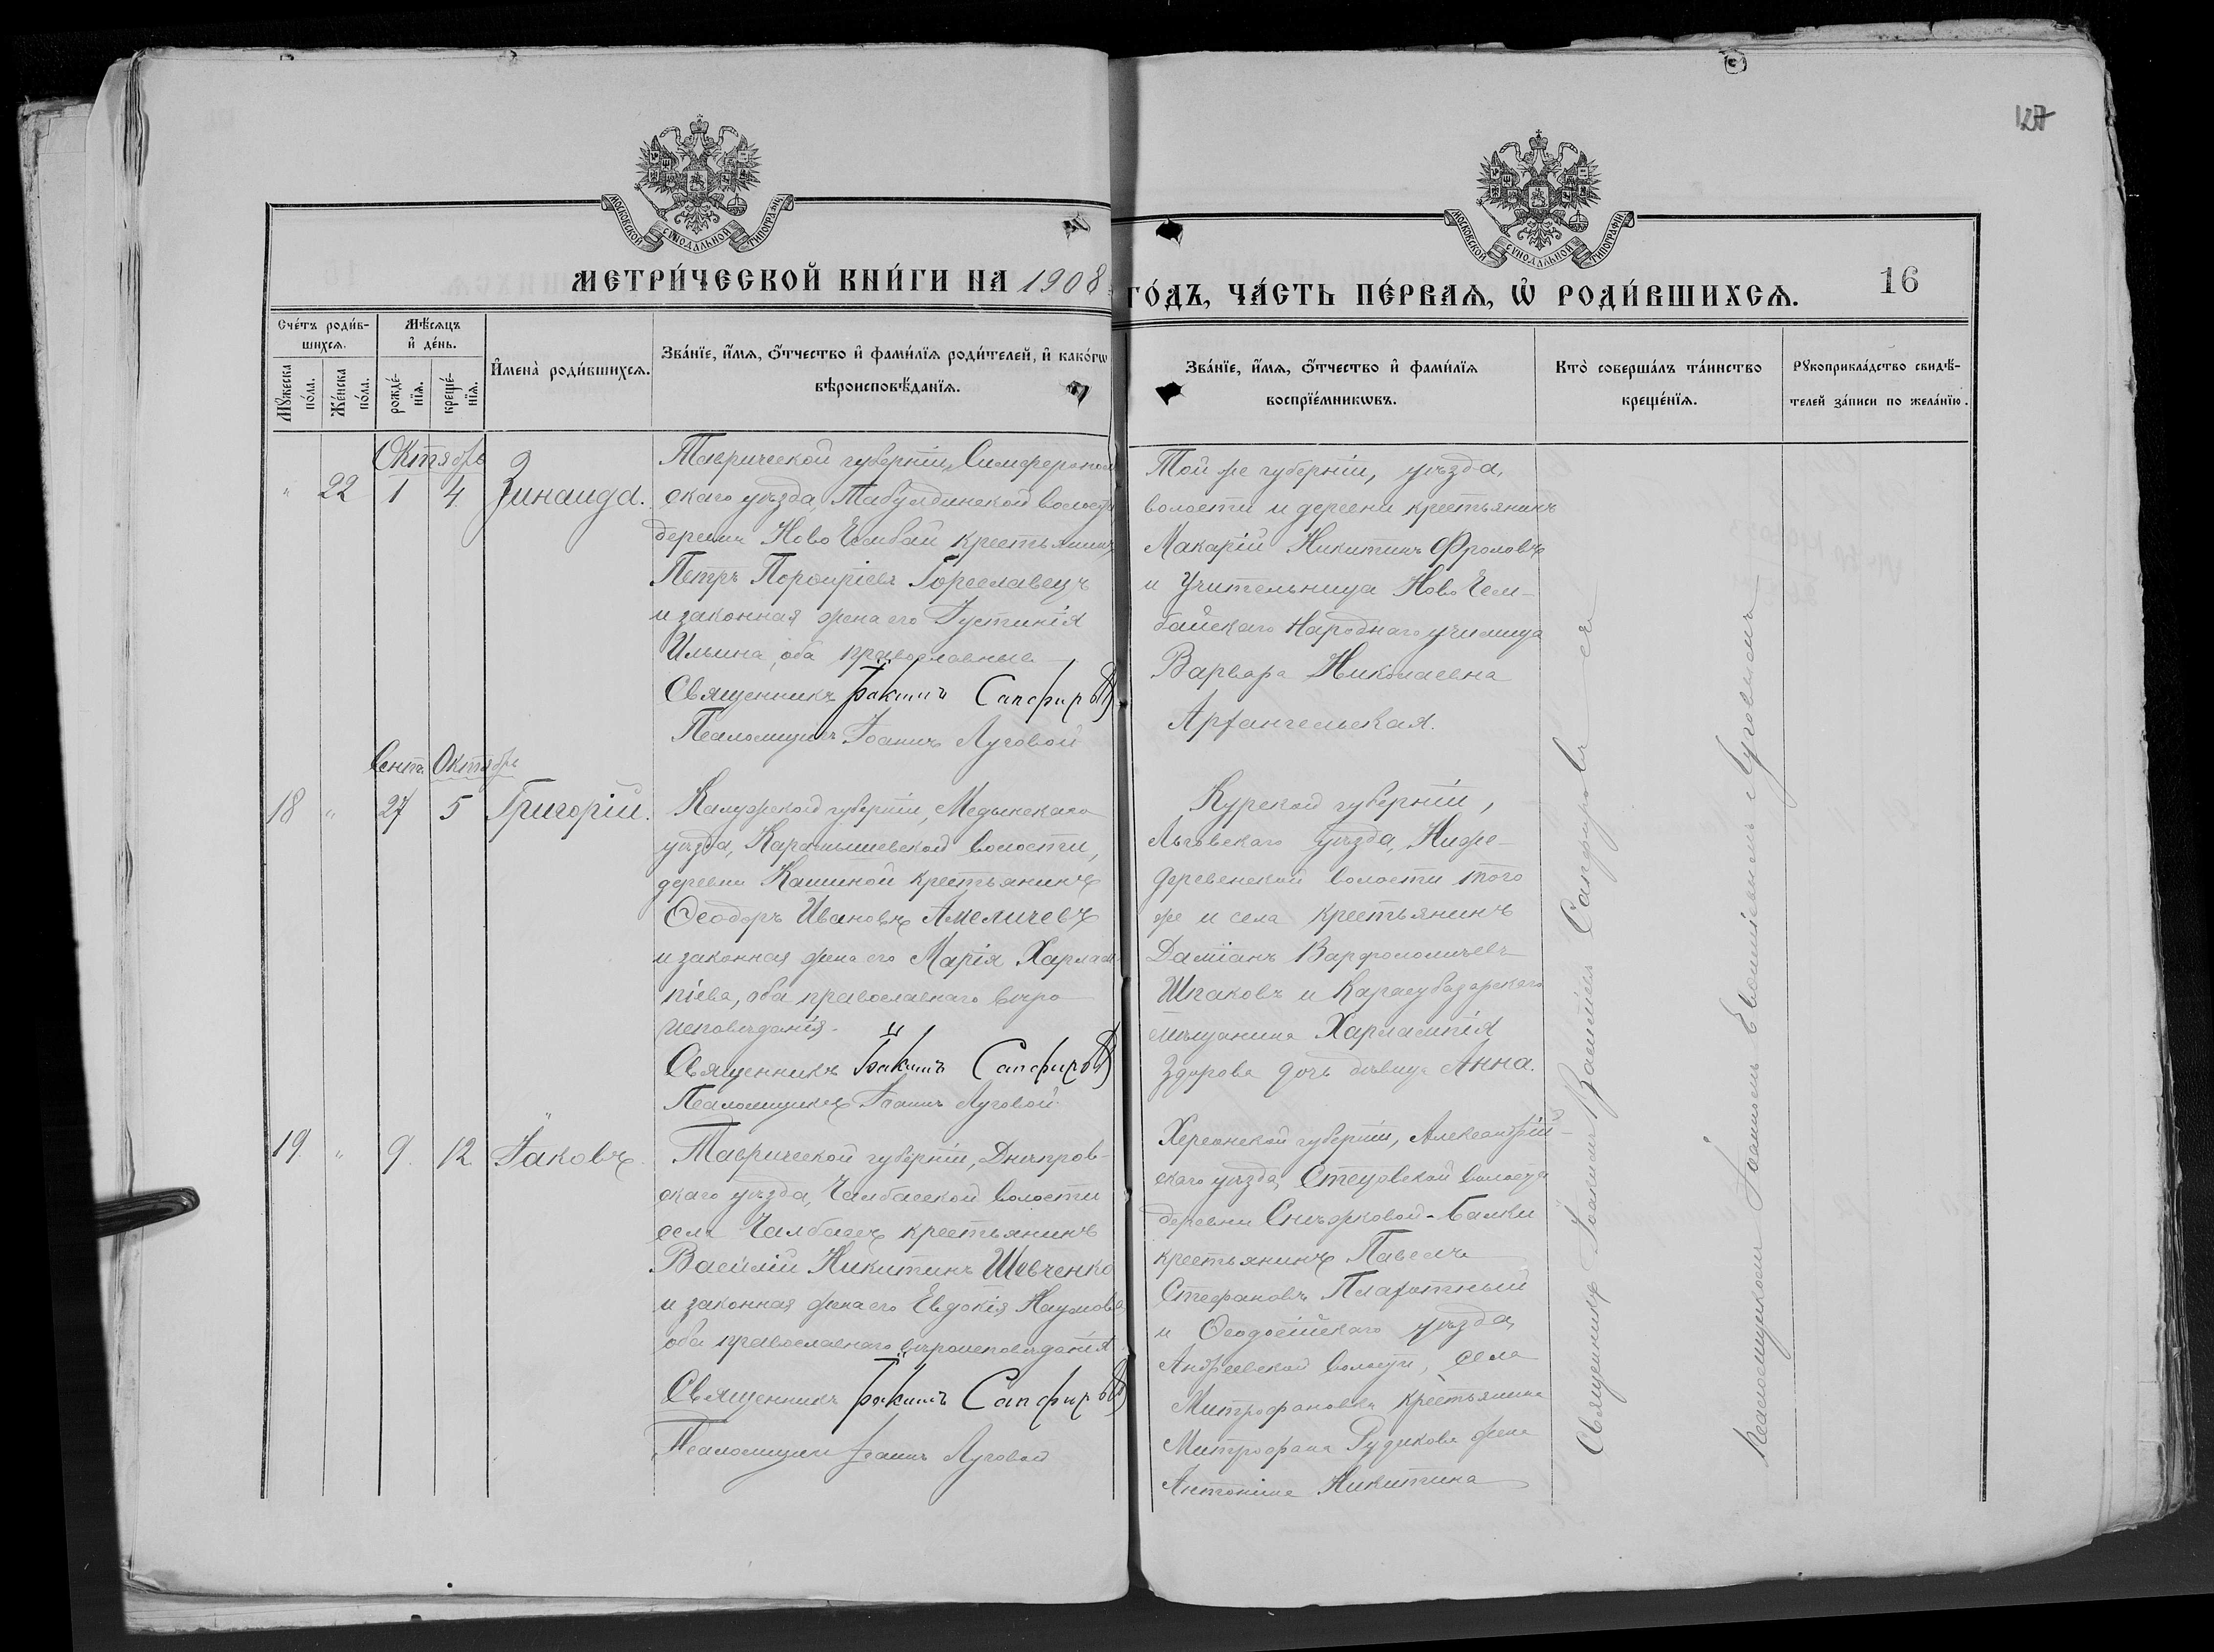 127
МОСКОВСКОЙ СУНОДАЛЬНОЙ ТИПОГРАФІИ
МОСКОВСКОЙ СУНОДАЛЬНОЙ ТИПОГРАФІИ
МЕТРИ́ЧЕСКОЙ КНИ́ГИ НА 1908
ГО́ДЪ, ЧА́СТЬ ПЕ́РВАѦ, Ѡ҆ РОДИ́ВШИХСѦ.
16
Сче́тъ роди́в-
шихсѧ.
Мѣ́сѧцъ
и҆ де́нь.
Мꙋ́жеска
по́ла.
Же́нска
по́ла.
рожде́-
нїѧ.
креще́-
нїѧ.
И҆мена̀ роди́вшихсѧ.
Зва́нїе, и҆́мѧ, ѻ҆́тчество и҆ фами́лїѧ роди́телей, и҆ како́гѡ
вѣроисповѣ́данїѧ.
Зва́нїе, и҆́мѧ, ѻ҆́тчество и҆ фами́лїѧ
воспрїе́мникѡвъ.
Кто̀ соверша́лъ та́инство
креще́нїѧ.
Рꙋкоприкла́дство свидѣ́-
телей за́писи по жела́нїю.
Октябрь
" 22 1 4 Зинаида.
Таврической губерніи, Симферополь
скаго уѣзда, Табулдинской волости
деревни Ново Чембай крестьянинъ
Петръ Порфиріевъ Гореславецъ
и законная жена его Іустинія
Ильина, оба православные
Священникъ Іоакимъ Сапфировъ
Псаломщикъ Іоаннъ Луговой
Той же губерніи, уѣзда,
волости и деревни крестьянинъ
Макарій Никитинъ Фроловъ
и Учительница Ново Чем-
байскаго Народнаго училища
Варвара Николаевна
Архангельская.
Сент. Октябрь
18 " 27 5 Григорій.
Калужской губерніи, Медынскаго
уѣзда, Карамышевской волости,
деревни Кашиной крестьянинъ
Ѳеодоръ Ивановъ Амеличевъ
и законная жена его Марія Харлам
піева, оба православнаго вѣро
исповѣданія.
Священникъ Іоакимъ Сапфировъ
Псаломщикъ Іоаннъ Луговой
Курской губерніи,
Льговскаго уѣзда, Ниже-
деревенской волости того
же и села крестьянинъ
Даміанъ Варфоломичевъ
Шпаковъ и Карасубазарскаго
мѣщанина Харлампія
Здорова дочь дѣвица Анна.
19. " 9. 12. Іаковъ
Таврической губерніи, Днѣпров-
скаго уѣзда, Чалбасской волости
села Чалбасъ крестьянинъ
Василій Никитинъ Шевченко
и законная жена его Евдокія Наумова,
оба православнаго вѣроисповѣданія.
Священникъ Іоакимъ Сапфировъ
Псаломщикъ Іоаннъ Луговой
Херсонской губерніи, Александрій-
скаго уѣзда, Стецовской волости
деревни Снѣжковой-Балки
крестьянинъ Павелъ
Стефановъ Плахотный
и Ѳеодосійскаго уѣзда,
Андреевской волости, села
Митрофановка крестьянина
Митрофана Рудикова жена
Антонина Никитина
Священникъ Іоакимъ Васильев Сапфировъ съ
псаломщикомъ Іоанномъ Луговымъ